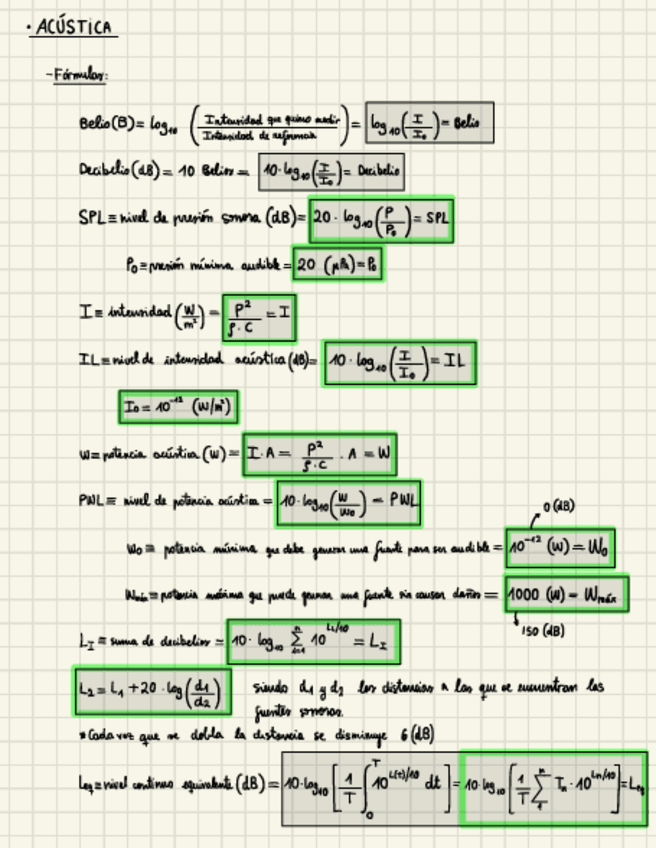 · ACÚSTICA
- Fórmulas:
Belio (B) = log₁₀ (Intensidad que quiero medir / Intensidad de referencia) = log₁₀ (I/I₀) = Belio
Decibelio (dB) = 10 Belios = 10·log₁₀ (I/I₀) = Decibelio
SPL ≡ nivel de presión sonora (dB) = 20 · log₁₀ (P/P₀) = SPL
P₀ ≡ presión mínima audible = 20 (μPa) = P₀
I ≡ intensidad (W/m²) = P²/ρ·C = I
IL ≡ nivel de intensidad acústica (dB) = 10 · log₁₀ (I/I₀) = IL
I₀ = 10⁻¹² (W/m²)
W ≡ potencia acústica (W) = I·A = P²/ρ·C · A = W
PWL ≡ nivel de potencia acústica = 10·log₁₀ (W/W₀) = PWL
0 (dB)
W₀ ≡ potencia mínima que debe generar una fuente para ser audible = 10⁻¹² (W) = W₀
Wmáx ≡ potencia máxima que puede generar una fuente sin causar daños = 1000 (W) = Wmáx
150 (dB)
L_I ≡ suma de decibelios = 10 · log₁₀ Σᵢ₌₁ⁿ 10^(Li/10) = L_I
L₂ = L₁ + 20 · log (d₁/d₂) siendo d₁ y d₂ las distancias a las que se encuentran las
fuentes sonoras.
* Cada vez que se dobla la distancia se disminuye 6 (dB)
Leq ≡ nivel continuo equivalente (dB) = 10·log₁₀ [1/T ∫₀ᵀ 10^(L(t)/10) dt] = 10·log₁₀ [1/T Σ₁ⁿ Tₙ · 10^(Ln/10)] = Leq